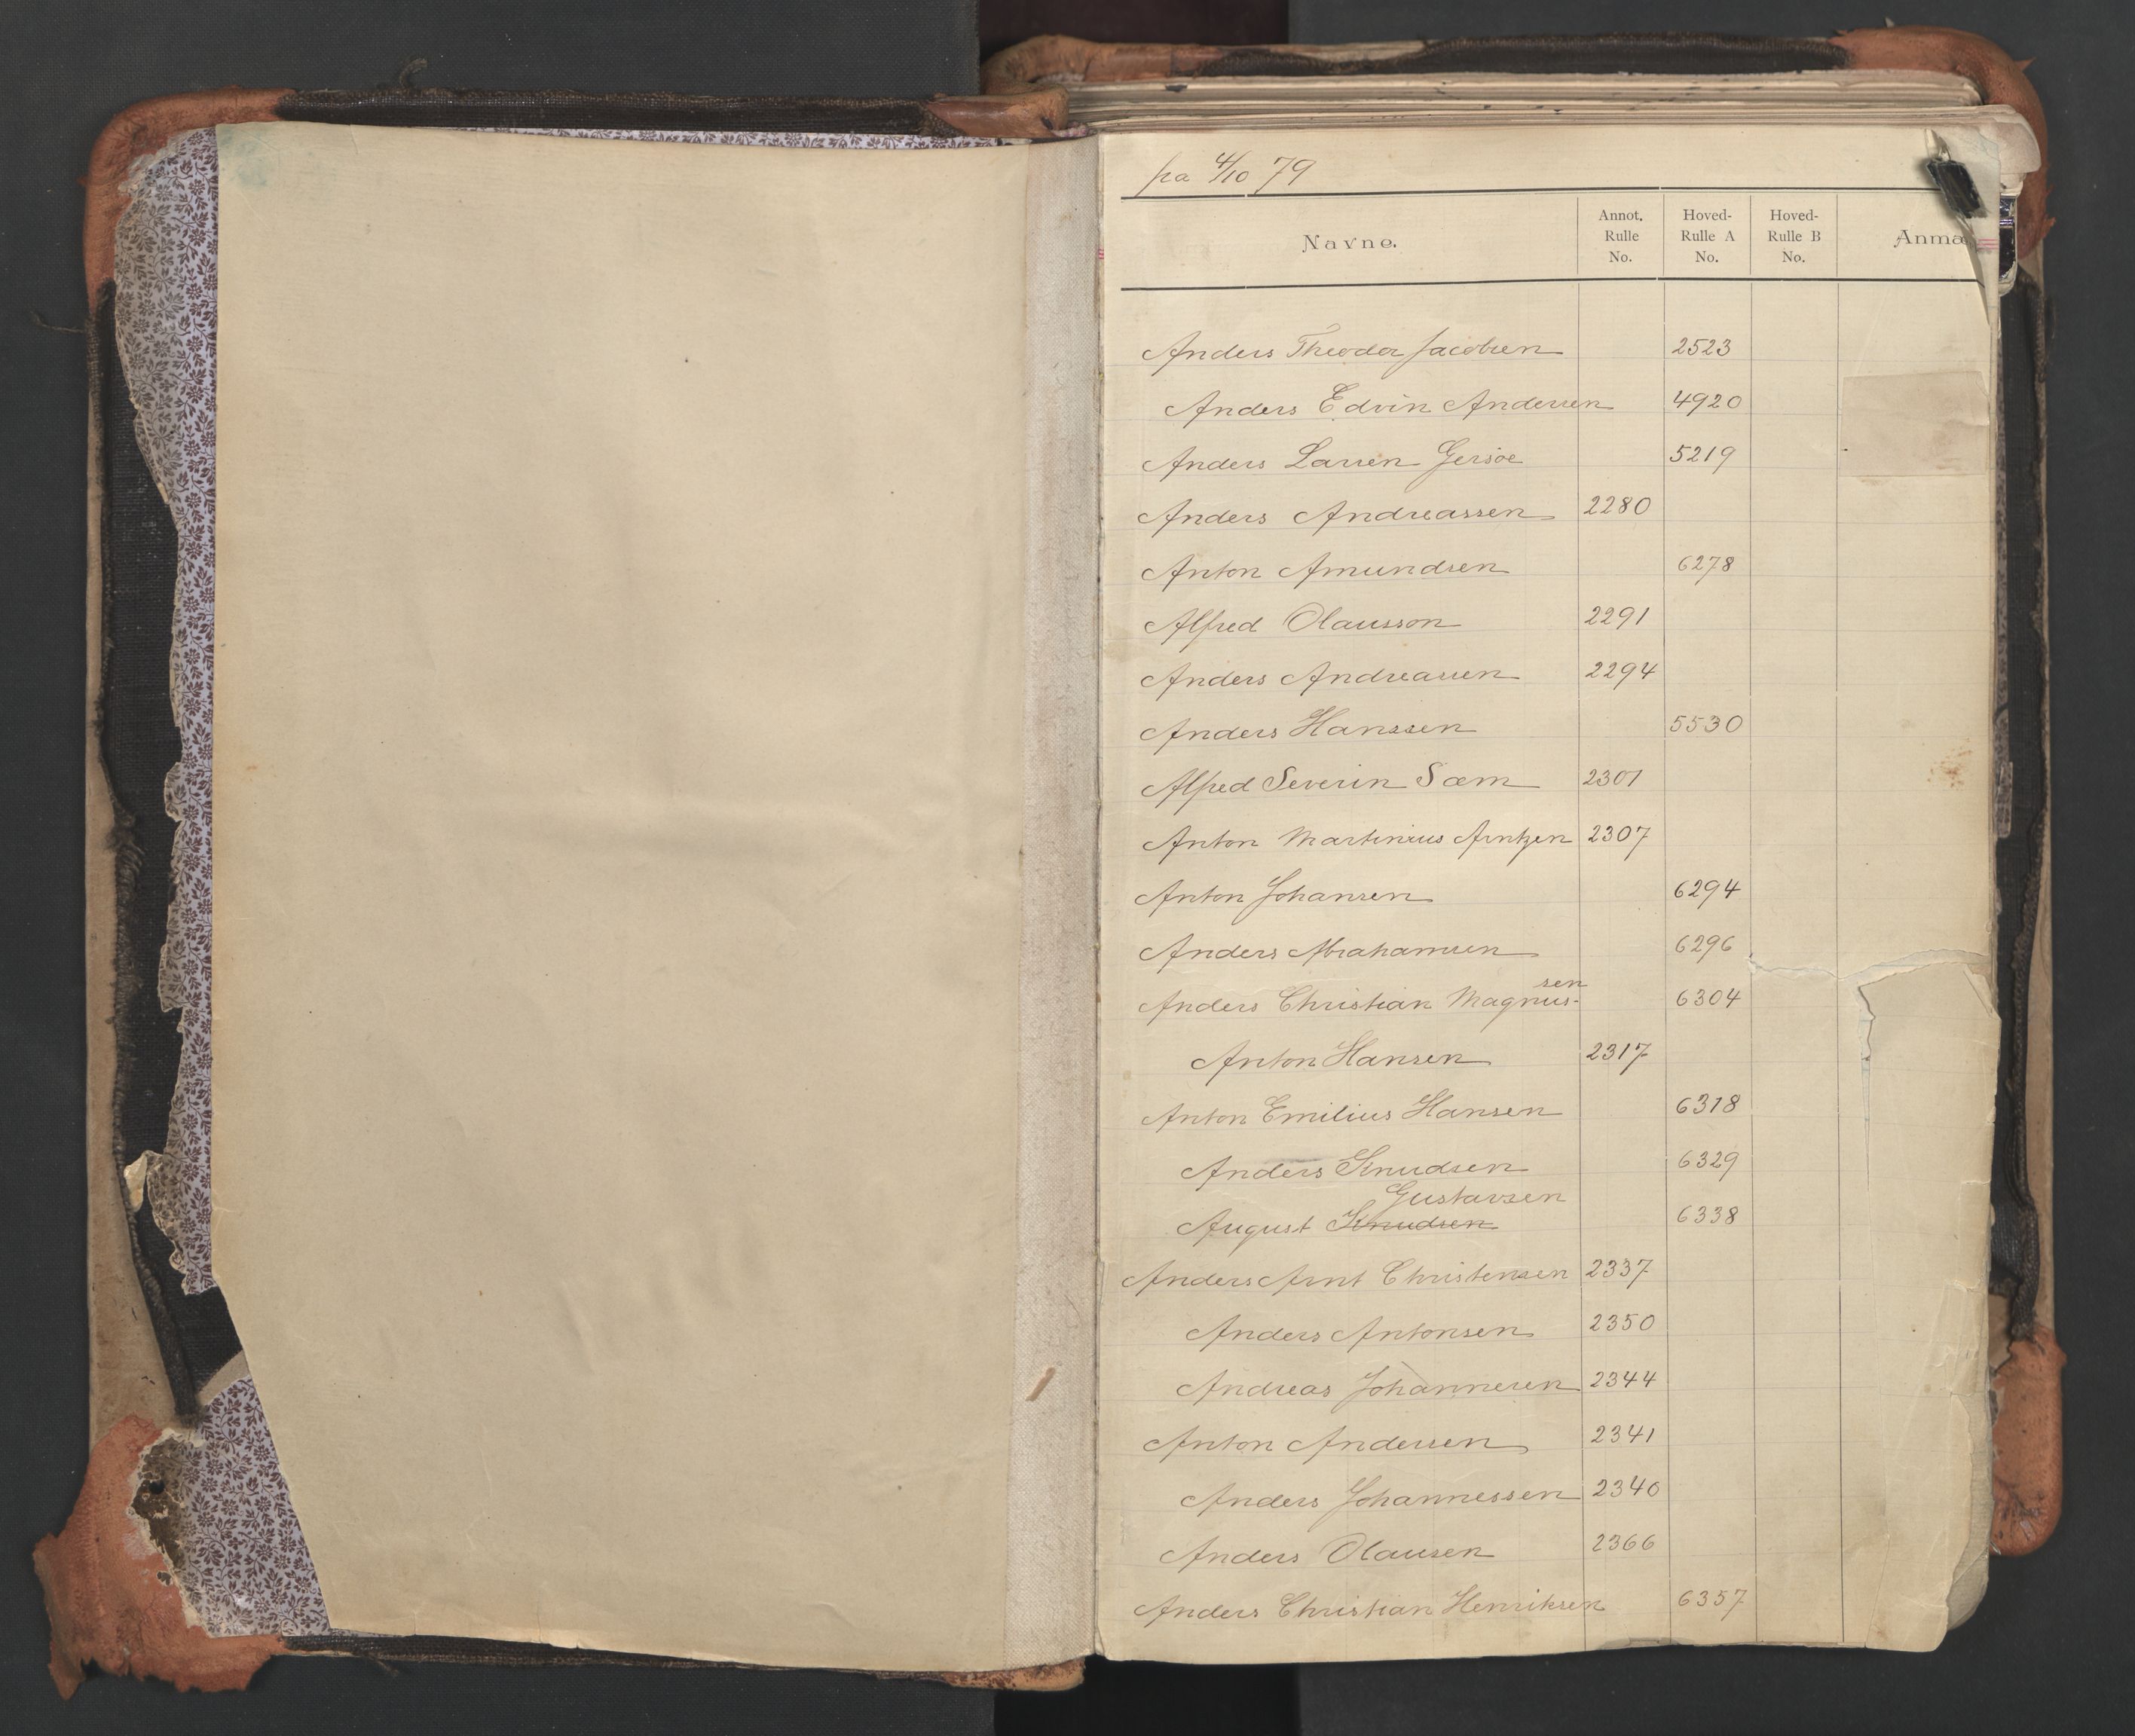 fra 4/10 79
Navne.
Annot. Rulle No.
Hoved-Rulle A No.
Hoved-Rulle B No.
Anmæ
Anders Theodor Jacobsen 2523
Anders Edvin Andersen 4920
Anders Larsen Gersöe 5219
Anders Andreassen 2280
Anton Amundsen 6278
Alfred Olausson 2291
Anders Andreassen 2294
Anders Hanssen 5530
Alfred Severin Sæm 2301
Anton Martinius Arntzen 2307
Anton Johansen 6294
Anders Abrahamsen 6296
Anders Christian Magnus-sen 6304
Anton Hansen 2317
Anton Emilius Hansen 6318
Anders Knudsen 6329
Gustavsen
August Knudsen 6338
Anders Arnt Christensen 2337
Anders Antonsen 2350
Andreas Johannesen 2344
Anton Andersen 2341
Anders Johannessen 2340
Anders Olausen 2366
Anders Christian Henriksen 6357